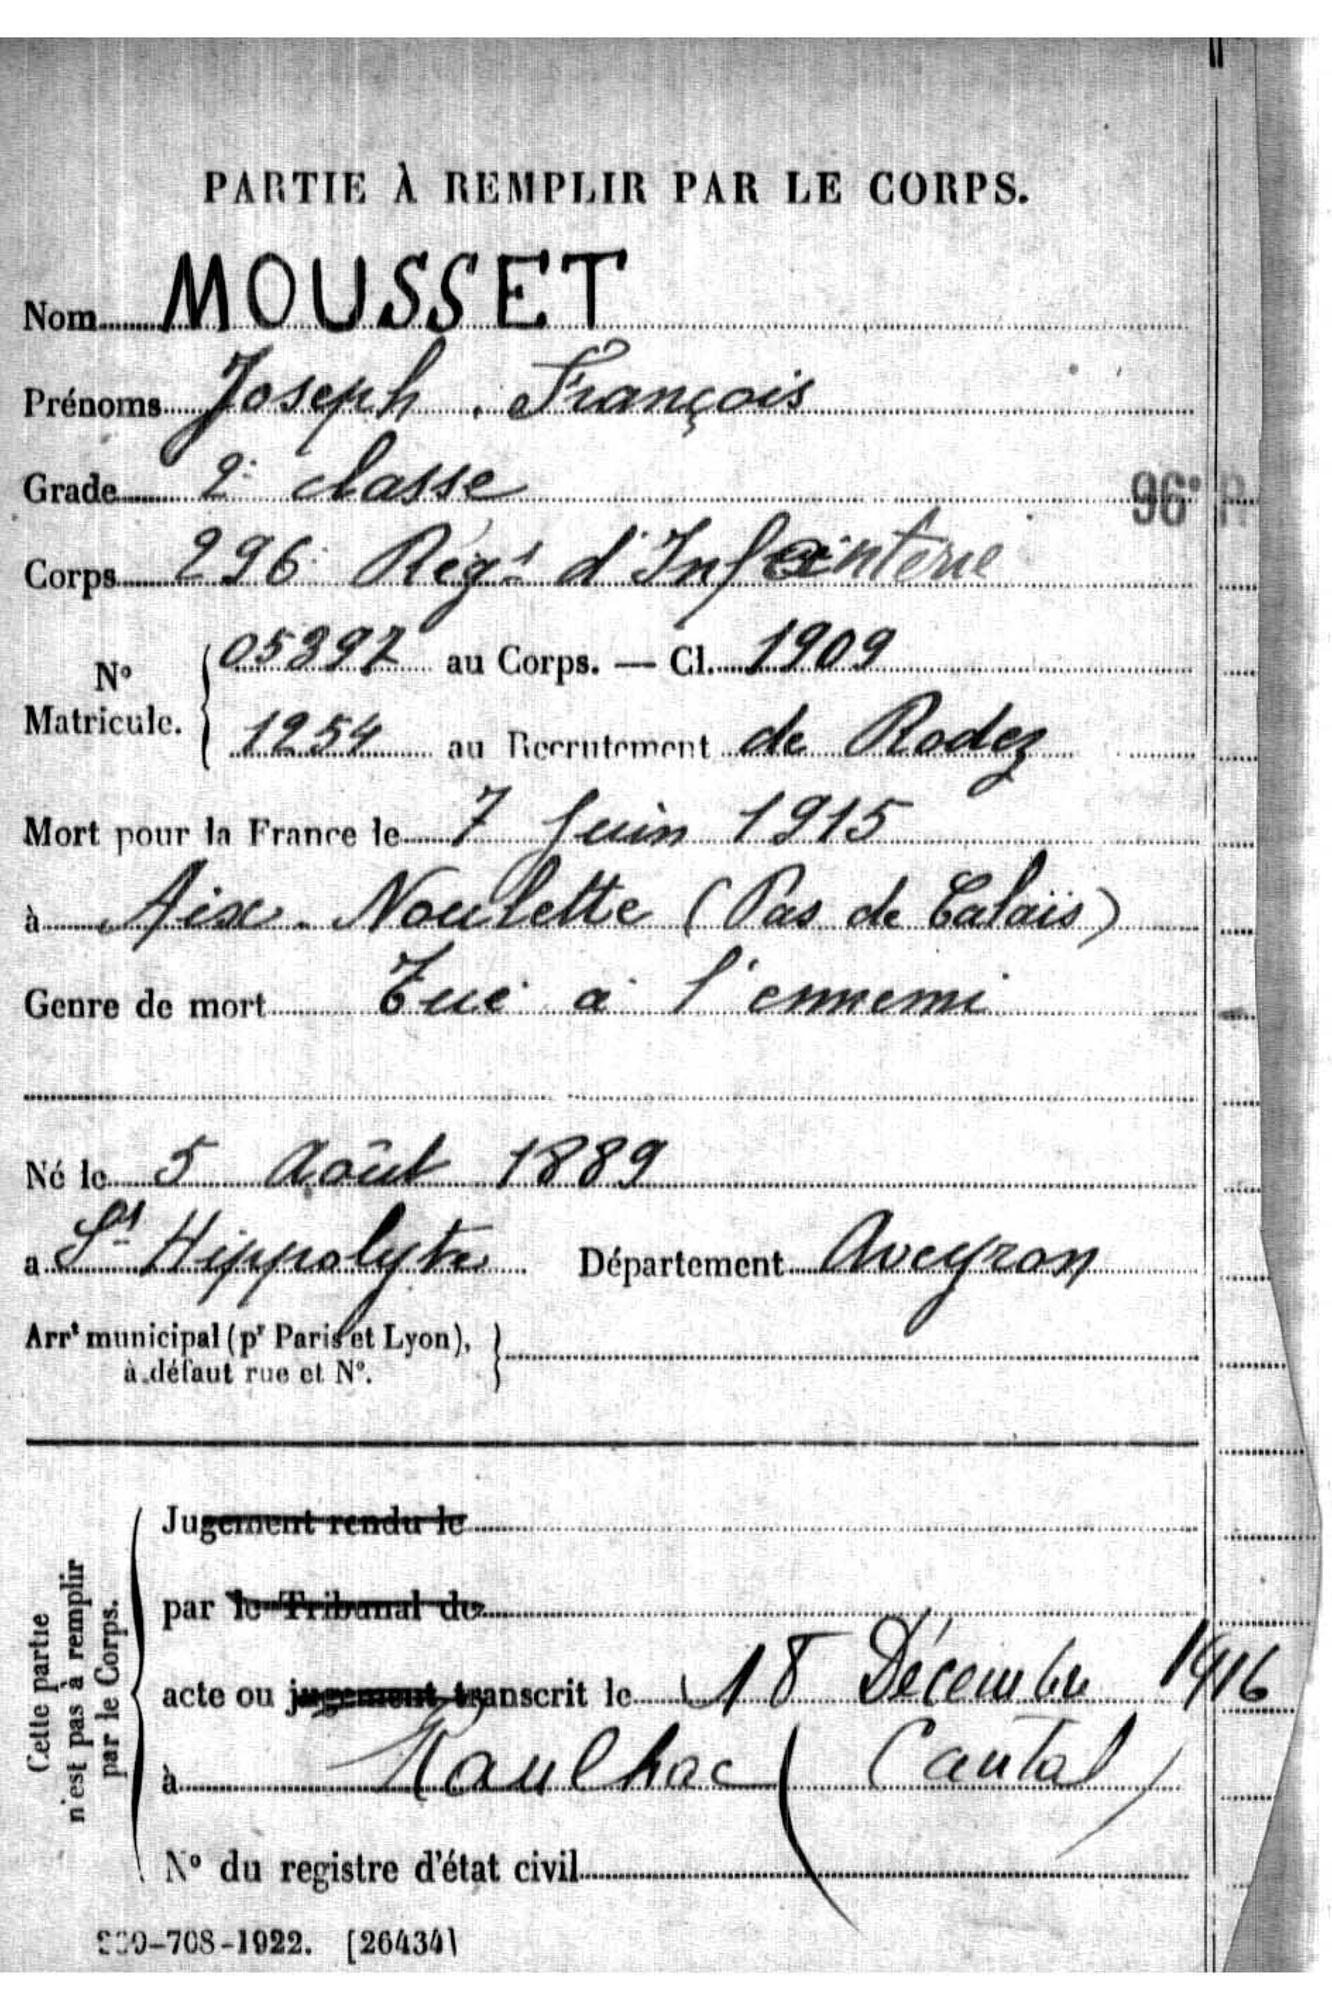 PARTIE À REMPLIR PAR LE CORPS.
Nom MOUSSET
Prénoms Joseph . François
Grade 2e classe
96e R
Corps 296e Régt d'Infanterie
No Matricule. 05397 au Corps. — Cl. 1909
1254 au Recrutement de Rodez
Mort pour la France le 7 Juin 1915
à Aix. Noulette (Pas de Calais)
Genre de mort Tué à l'ennemi
Né le 5 Août 1889
a St Hippolyte Département Aveyron
Arrt municipal (pr Paris et Lyon),
à défaut rue et No.
Cette partie
n'est pas à remplir
par le Corps.
Jugement rendu le
par le Tribunal de
acte ou jugement transcrit le 18 Décembre 1916
à Raulhac (Cantal)
No du registre d'état civil
-708-1922. [26434]